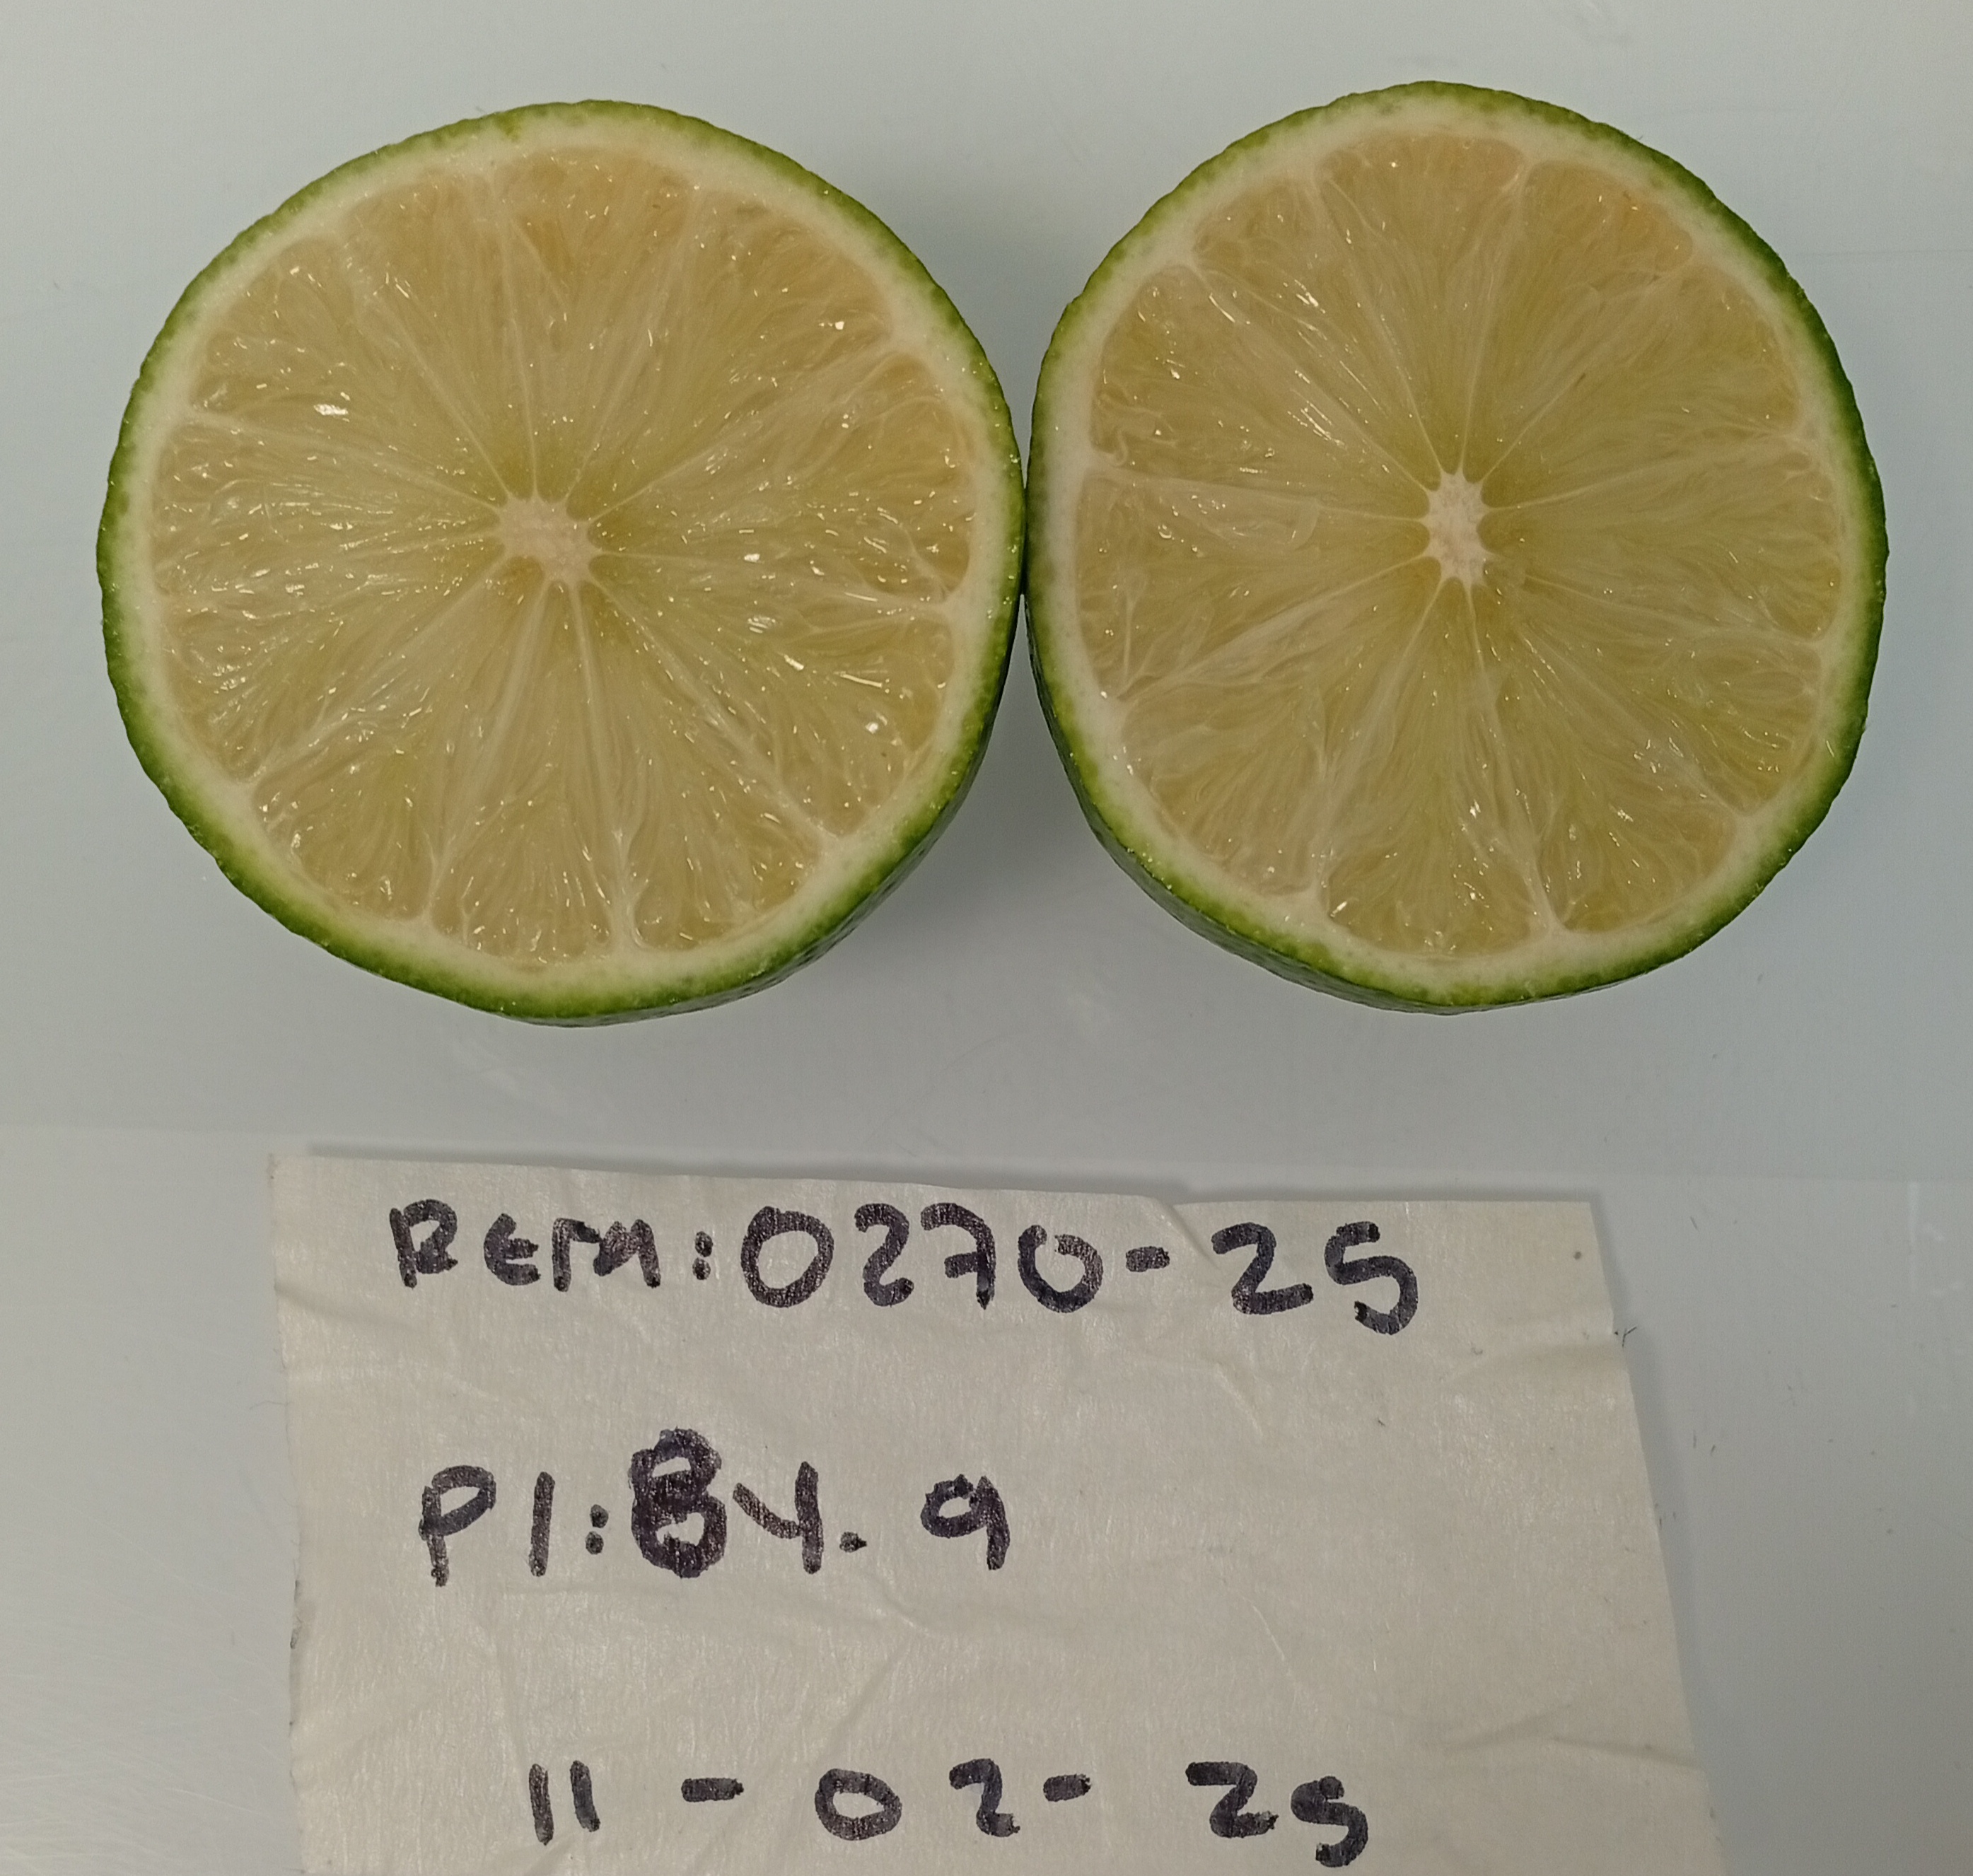 REM:0270-25
PI:84.9
11-02-25